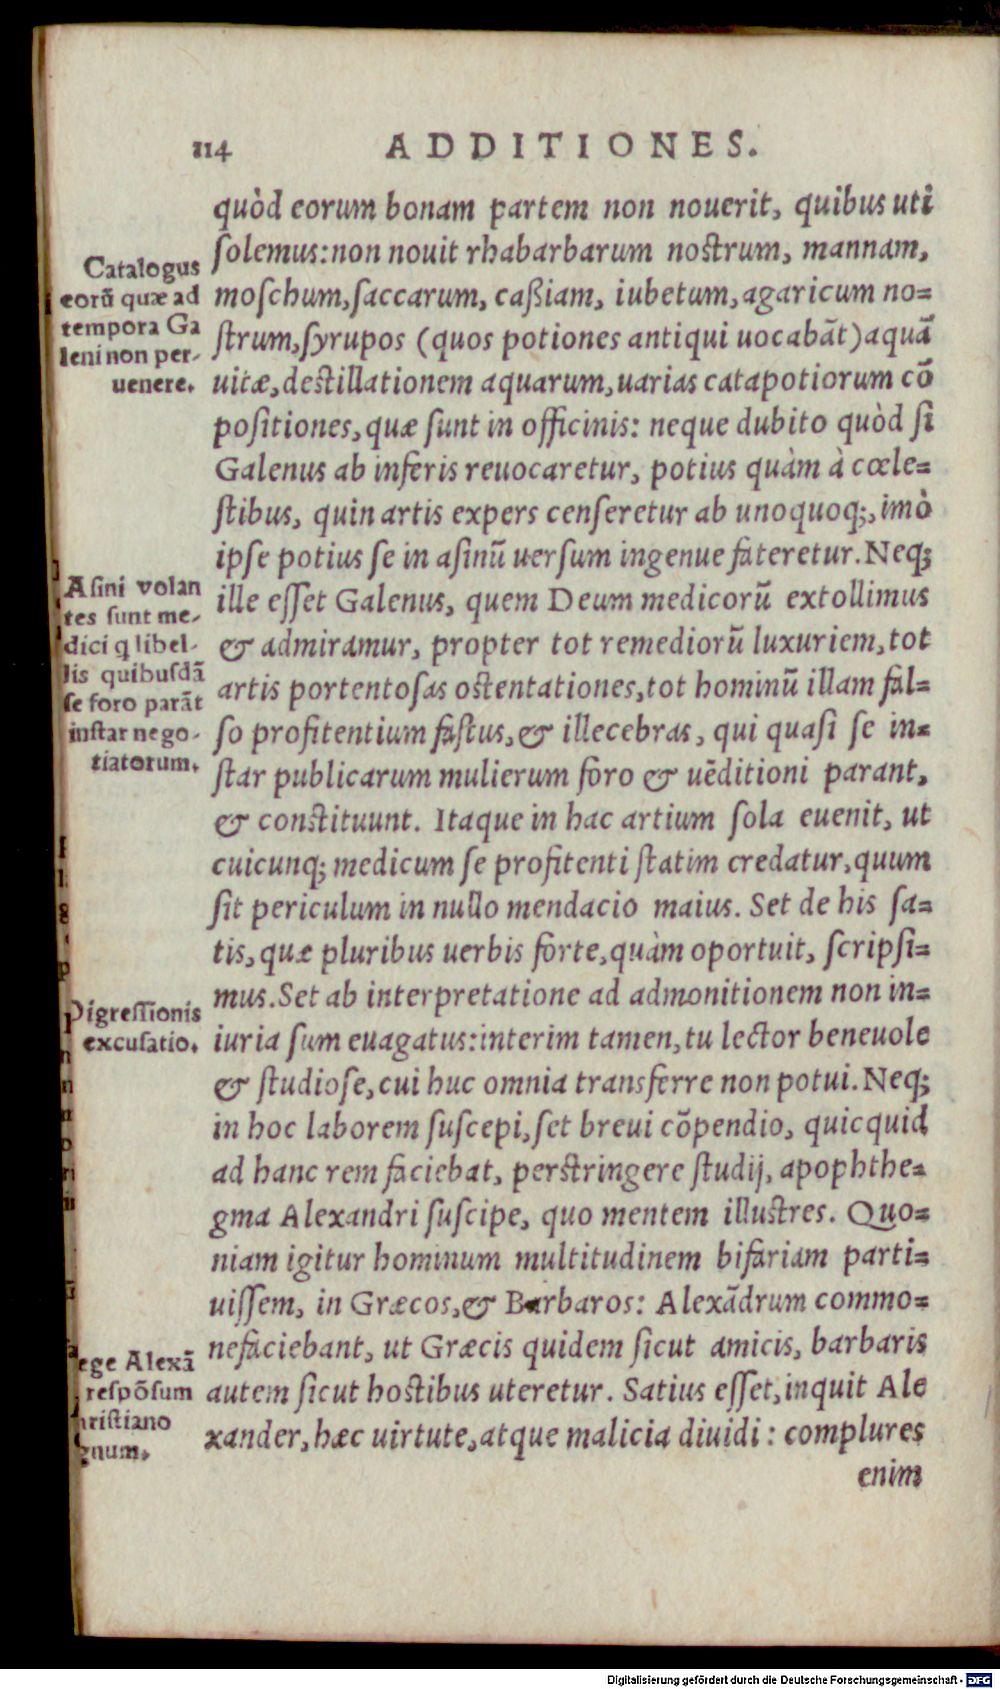 114 ADDITIONES.
quòd eorum bonam partem non nouerit, quibus uti
ſolemus: non nouit rhabarbarum noſtrum, mannam,
moſchum, ſaccarum, caßiam, iubetum, agaricum no=
ſtrum, ſyrupos (quos potiones antiqui uocabāt) aquā
uitæ, deſtillationem aquarum, uarias catapotiorum cō
poſitiones, quæ ſunt in officinis: neque dubito quòd ſi
Galenus ab inferis reuocaretur, potius quàm à cœle=
ſtibus, quin artis expers cenſeretur ab unoquoq;, imò
ipſe potius ſe in aſinū uerſum ingenue fateretur. Neq;
ille eſſet Galenus, quem Deum medicorū extollimus
& admiramur, propter tot remediorū luxuriem, tot
artis portentoſas oſtentationes, tot hominū illam fal=
ſo profitentium faſtus, & illecebras, qui quaſi ſe in=
ſtar publicarum mulierum foro & uēditioni parant,
& conſtituunt. Itaque in hac artium ſola euenit, ut
cuicunq; medicum ſe profitenti ſtatim credatur, quum
ſit periculum in nullo mendacio maius. Set de his ſa=
tis, quæ pluribus uerbis forte, quàm oportuit, ſcripſi=
mus. Set ab interpretatione ad admonitionem non in=
iuria ſum euagatus: interim tamen, tu lector beneuole
& ſtudioſe, cui huc omnia transferre non potui. Neq;
in hoc laborem ſuſcepi, ſet breui cōpendio, quicquid
ad hanc rem faciebat, perſtringere ſtudij, apophthe=
gma Alexandri ſuſcipe, quo mentem illuſtres. Quo=
niam igitur hominum multitudinem bifariam parti=
uiſſem, in Græcos, & Barbaros: Alexādrum commo=
nefaciebant, ut Græcis quidem ſicut amicis, barbaris
autem ſicut hoſtibus uteretur. Satius eſſet, inquit Ale
xander, hæc uirtute, atque malicia diuidi: complures
enim
Catalogus
eorū quæ ad
tempora Ga
leni non per-
uenere.
Aſini volan
tes ſunt me-
dici q libel-
lis quibuſdā
ſe foro parāt
inſtar nego-
tiatorum.
Digreſſionis
excuſatio.
ege Alexā
reſpōſum
hriſtiano
gnum.
Digitalisierung gefördert durch die Deutsche Forschungsgemeinschaft - DFG